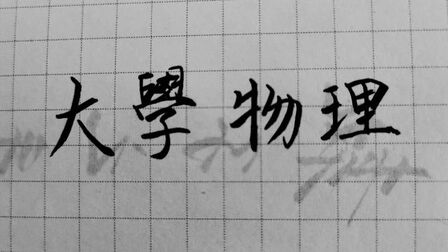 大學物理